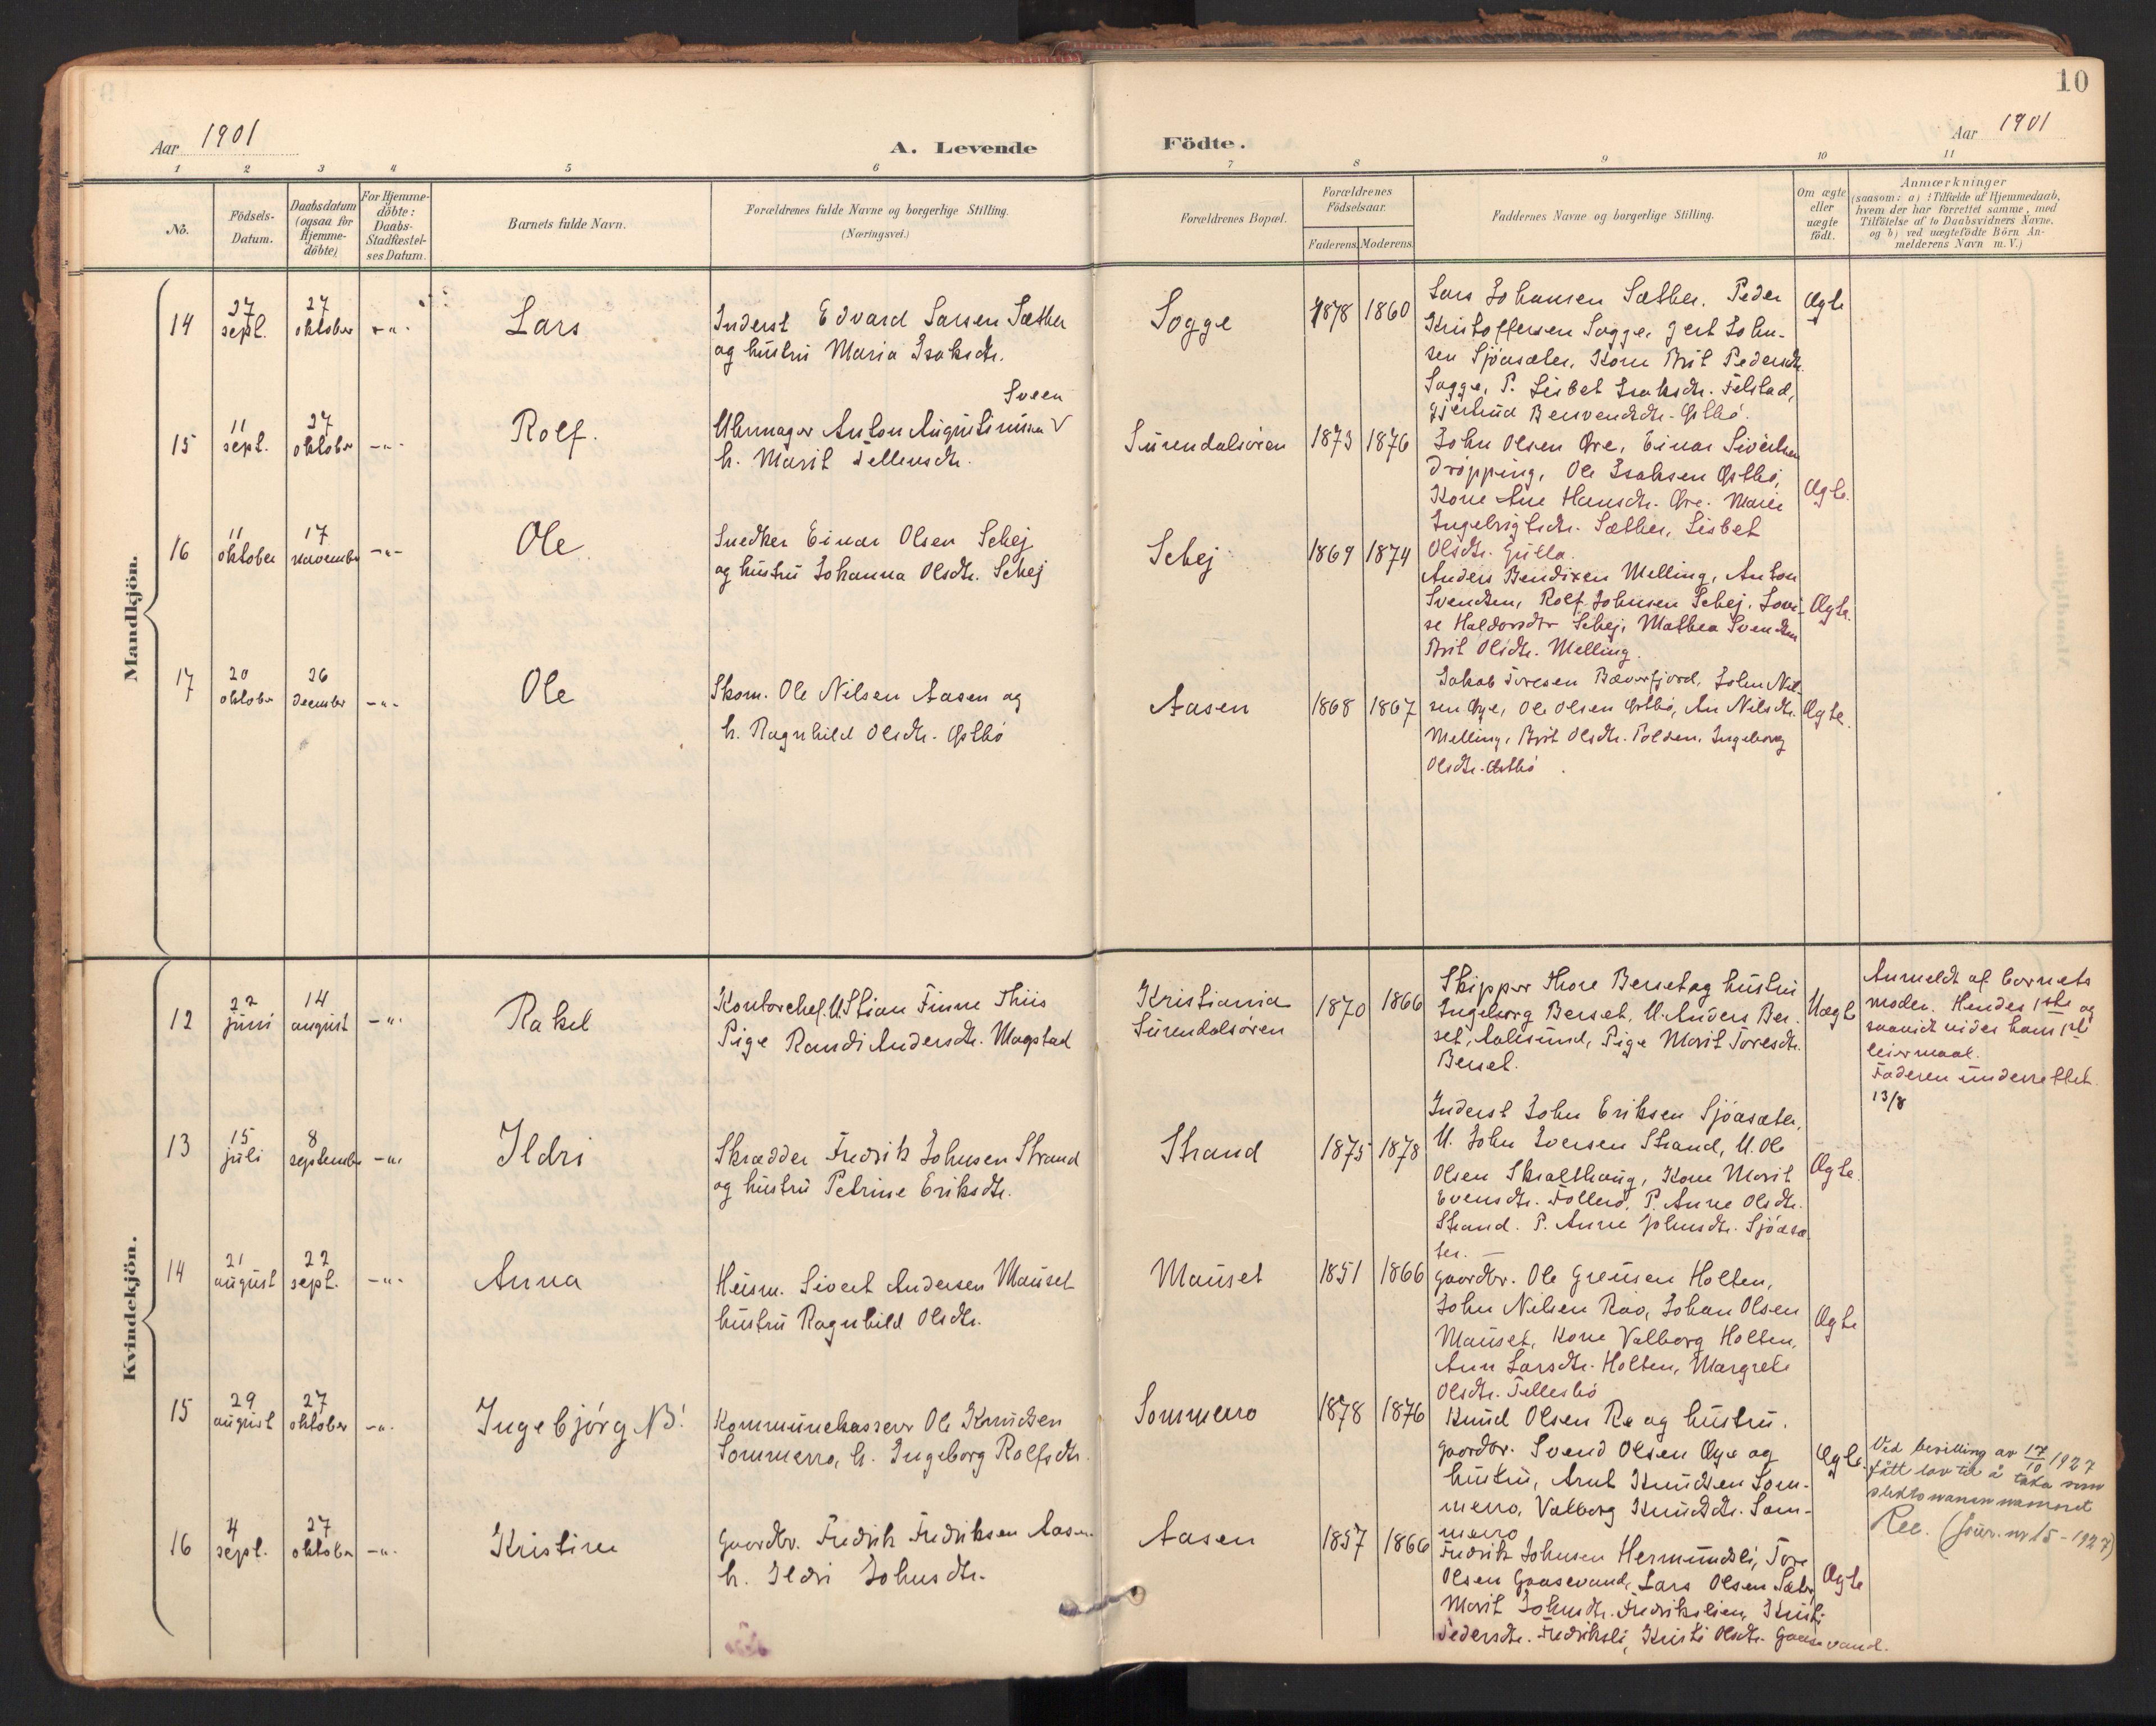 10
Aar 1901
A. Levende
Födte.
Aar 1901
1 2 3 4 5 6 7 8 9 10 11
No.
Födsels-
Datum.
Daabsdatum
(ogsaa for
Hjemme-
döbte)
For Hjemme-
döbte:
Daabs-
Stadfæstel-
ses Datum.
Barnets fulde Navn.
Forældrenes fulde Navne og borgerlige Stilling.
(Næringsvei.)
Forældrenes Bopæl.
Forældrenes
Födselsaar.
Faderens. Moderens.
Faddernes Navne og borgerlige Stilling.
Om ægte
eller
uægte
födt.
Anmærkninger
(saasom: a) i Tilfælde af Hjemmedaab,
hvem der har forrettet samme, med
Tilföielse af to Daabsvidners Navne.
og b) ved uægtefödte Börn An-
melderens Navn m. V.)
Mandkjön.
14
27
sept.
27
oktober
-"-
Lars
Inderst Edvard Larsen Sæther
og hustru Maria Isaksdtr.
Sogge
1878 1860
Lars Johansen Sæther. Peder
Kristoffersen Sogge, Gert John-
sen Sjöasæter, Kone Brit Pedersdtr.
Sogge, P. Lisbet Isaksdtr. Telstad,
Gjertrud Bersvendsdtr. Østbö.
Ægte
15
11
sept.
27
oktober
-"-
Rolf.
Sveen
Uhrmager Anton Augustinusen V
h. Marit Tellensdtr.
Surendalsören
1873 1876
John Olsen Øre, Einar Sivertsen
Dröpping, Ole Isaksen Østbö,
Kone Ane Hansdtr. Øre. Marie
Ingebrigtsdtr. Sæther, Lisbet
Olsdtr. Gulla.
Ægte.
16
11
oktober
17
november
-"-
Ole
Snedker Einar Olsen Schej
og hustru Johanna Olsdtr. Schej
Schej
1869 1874
Anders Bendixen Melling, Anton
Svendsen, Rolf Johnsen Schej, Lovi-
se Haldorsdtr Schej, Mathea Svendsen
Brit Olsdtr. Melling.
Ægte.
17
20
oktober
26
December
-"-
Ole
Skom. Ole Nilsen Aasen og
h. Ragnhild Olsdtr. Østbö
Aasen
1868 1867
Jakob Toresen Bæverfjord, John Nil-
sen Øye, Ole Olsen Østbö, An Nilsdtr.
Melling, Brit Olsdtr. Polden, Ingeborg
Olsdtr. Østbö.
Ægte.
Kvindekjön.
12
22
juni
14
august
-"-
Rakel
Kontorchef. U. Stian Finne Thiis
Pige Randi Andersdtr. Mogstad
Kristiania
Surendalsören
1870 1866
Skipper Thore Berset og hustru
Ingeborg Berset, U. Anders Ber-
set, Aalesund, Pige Marit Toresdtr.
Berset.
Uægte
Anmeldt af barnets
moder. Hendes 1ste og
saavidt vides hans 1ste
leiermaal.
Faderen underrettet.
13/8
13
15
juli
8
september
-"-
Ildri
Skrædder Fredrik Johnsen Strand
og hustru Petrine Eriksdtr.
Strand
1875 1878
Inderst John Eriksen Sjöasæter,
U. John Iversen Strand, U. Ole
Olsen Skralthaug, Kone Marit
Evensdtr. Follerö, P. Anne Olsdtr.
Strand. P. Anne Johnsdtr. Sjöasæ-
ter. —
Ægte.
14
21
august
22
sept.
-"-
Anna
Husm. Sivert Andersen Mauset
hustru Ragnhild Olsdtr.
Mauset
1851 1866
Gaardbr. Ole Grensen Holten,
John Nilsen Rao, Johan Olsen
Mauset, Kone Valborg Holten,
Ann Larsdtr. Holten, Margrete
Olsdtr. Tellesbö
Ægte
15
29
august
27
oktober
-"-
Ingebjörg N.B!
Kommunekasserer Ole Knudsen
Sommerro, h. Ingeborg Rolfsdtr.
Sommerro
1878 1876
Knud Olsen Rø og hustru.
Gaardbr. Svend Olsen Øye og
hustru, Arnt Knudsen Som-
merro, Valborg Knudsdtr. Som-
merro
Ægte.
Ved bevilling av 17/10 1927
fått lov til å taka som
slektsnavn navnet
Ree. (Jour. nr 15 - 1927)
16
4
sept.
27
oktober
-"-
Kristine
Gaardbr. Fredrik Fredriksen Aasen
h. Ildri Johnsdtr.
Aasen
1857 1866
Fredrik Johnsen Hermundsli, Tore
Olsen Gaasevand, Lars Olsen Sæter,
Marit Johnsdtr. Fredrikslien, Kristi
Pedersdtr. Fredriksli, Kristi Olsdtr. Gaasevand.
Ægte